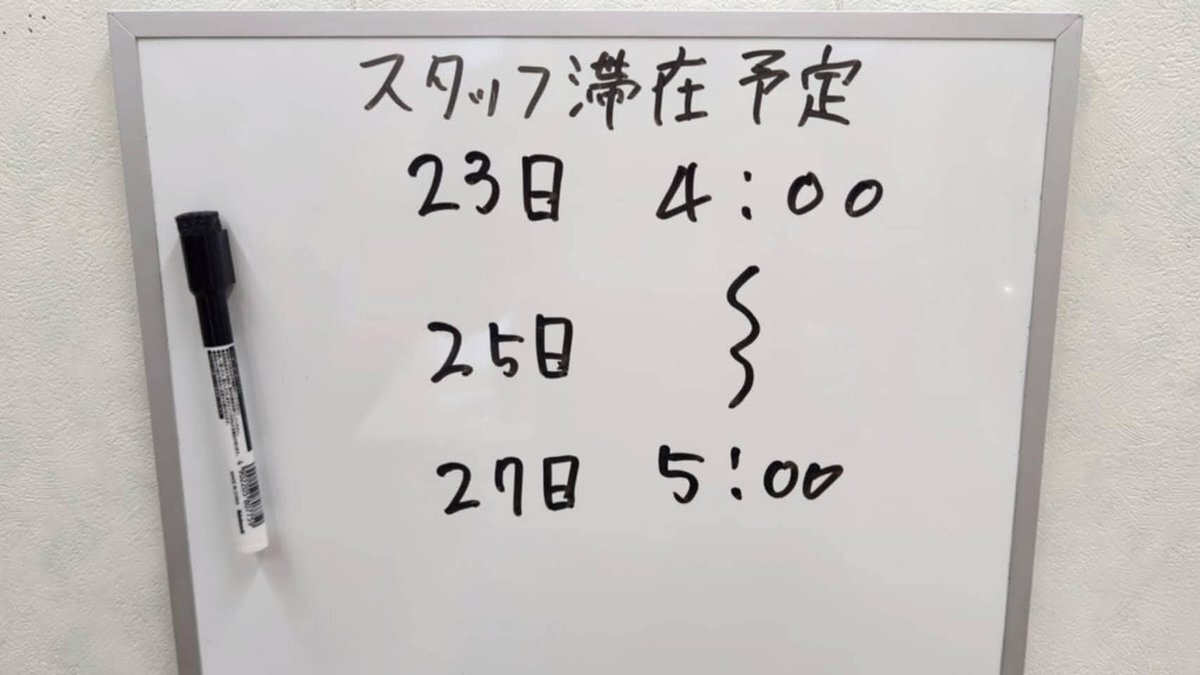 スタッフ滞在予定
23日 4:00
25日 〜
27日 5:00